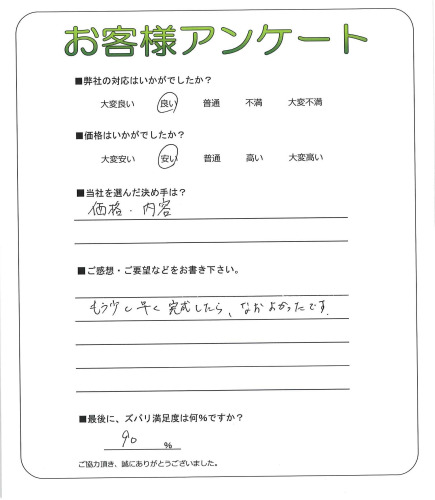 お客様アンケート
■弊社の対応はいかがでしたか？
大変良い 良い 普通 不満 大変不満
■価格はいかがでしたか？
大変安い 安い 普通 高い 大変高い
■当社を選んだ決め手は？
価格・内容
■ご感想・ご要望などをお書き下さい。
もう少し早く完成したら、なおよかったです.
■最後に、ズバリ満足度は何％ですか？
90 ％
ご協力頂き、誠にありがとうございました。